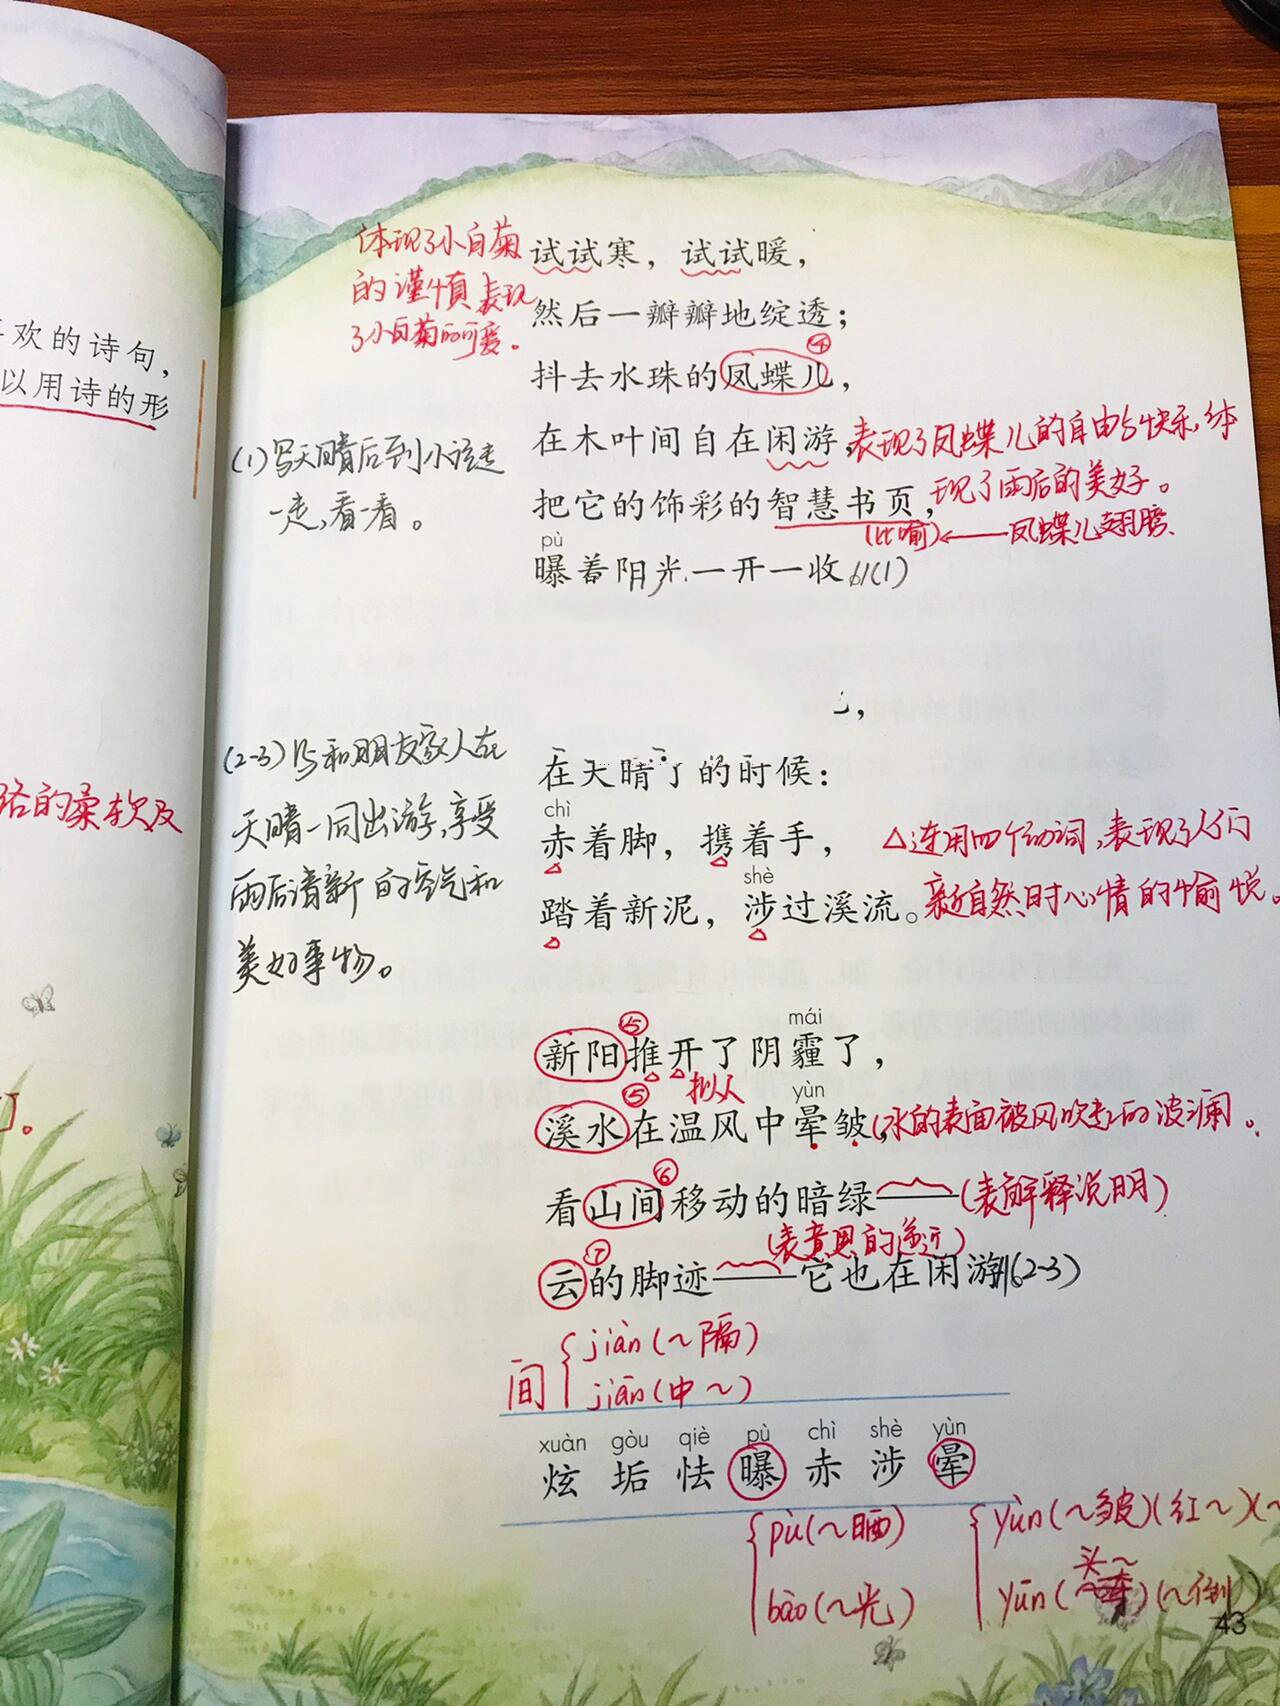 欢的诗句，
以用诗的形
络的柔软及
体现了小白菊
的谨慎表现
了小白菊的可爱。
试试寒，试试暖，
然后一瓣瓣地绽透；
④
抖去水珠的凤蝶儿，
在木叶间自在闲游，
表现了凤蝶儿的自由与快乐，体
现了雨后的美好。
把它的饰彩的智慧书页，
（比喻）
凤蝶儿翅膀
pù
曝着阳光一开一收
(1)
(1)写天晴后到小径走
一走，看一看。
(2-3)
和朋友家人在
天晴一同出游，享受
雨后清新的空气和
美好事物。
在天晴了的时候：
chì
赤着脚，携着手，
shè
踏着新泥，涉过溪流。
△连用四个动词，表现了人们
亲近自然时心情的愉悦。
mái
⑤
新阳推开了阴霾了，
拟人
yùn
⑤
溪水在温风中晕皱，
(水的表面被风吹起的波澜。
⑥
看山间移动的暗绿——
(表解释说明)
(表意思的递进)
⑦
云的脚迹——它也在闲游
(2-3)
间
jiàn(～隔)
jiān(中～)
xuàn gòu qiè pù chì shè yùn
炫 垢 怯 曝 赤 涉 晕
pù(～晒)
bào(～光)
yùn(～皱)(红～)
头～
yūn
(～倒)
43